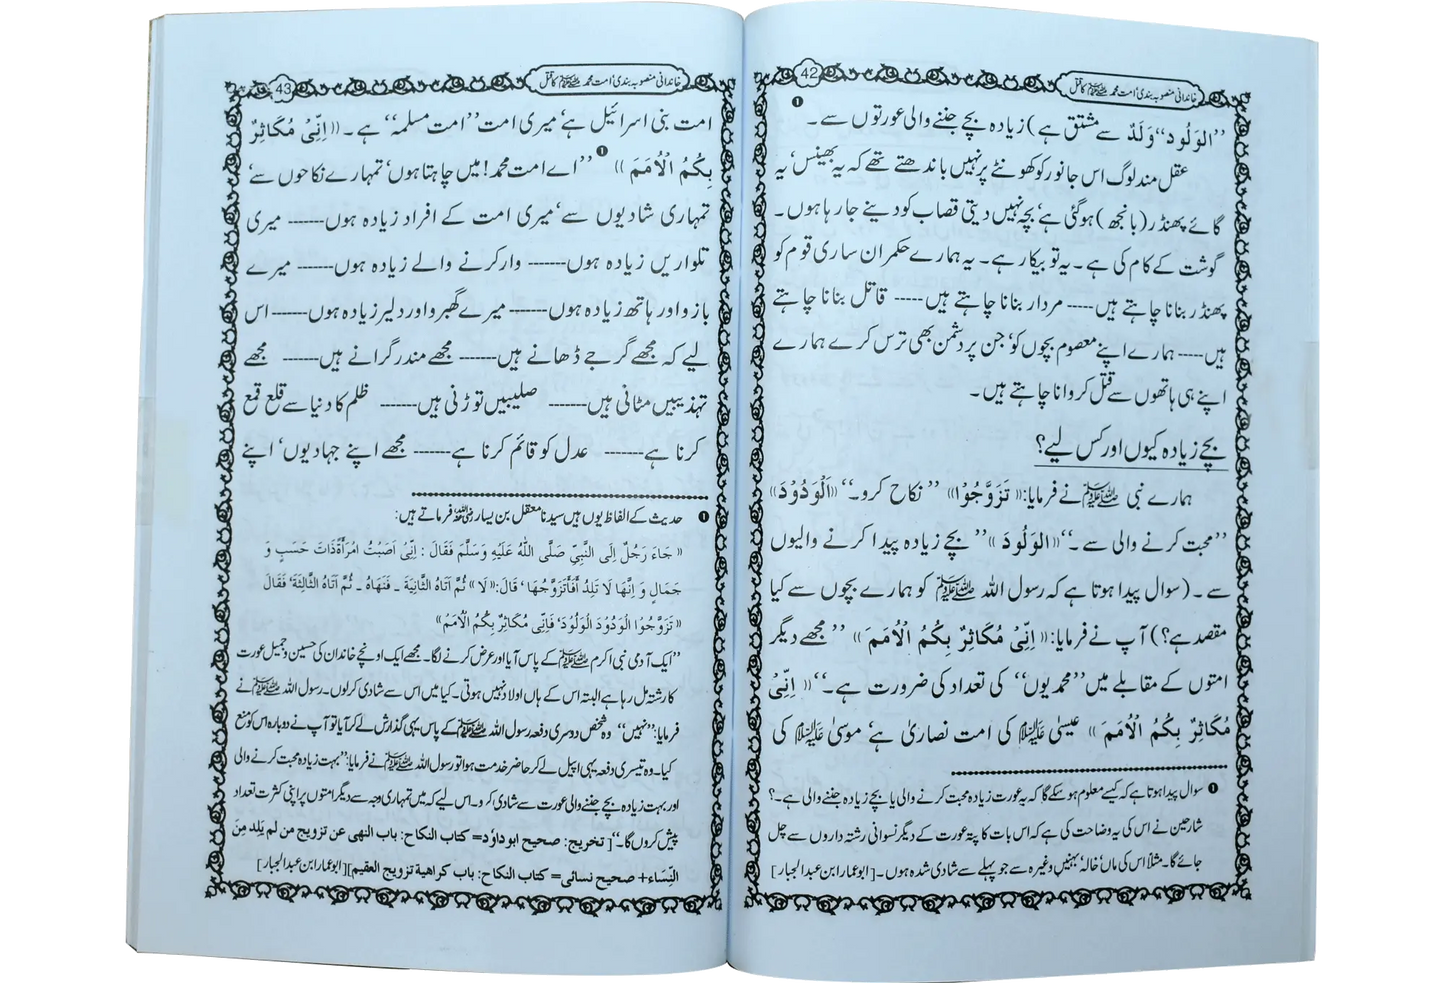 خاندانی منصوبہ بندی امت محمد ﷺ کا قتل
42
’’الوَلُود‘‘ وَلَدٌ سے مشتق ہے) زیادہ بچے جننے والی عورتوں سے۔ ❶
عقل مند لوگ اس جانور کو کھونٹے پر نہیں باندھتے تھے کہ یہ بھینس‘ یہ
گائے پھنڈر (بانجھ) ہو گئی ہے‘ بچہ نہیں دیتی قصاب کو دینے جا رہا ہوں۔
گوشت کے کام کی ہے۔ یہ تو بیکار ہے۔ یہ ہمارے حکمران ساری قوم کو
پھنڈر بنانا چاہتے ہیں ---- مردار بنانا چاہتے ہیں ---- قاتل بنانا چاہتے
ہیں ---- ہمارے اپنے معصوم بچوں کو‘ جن پر دشمن بھی ترس کرے ہمارے
اپنے ہی ہاتھوں سے قتل کروانا چاہتے ہیں۔
بچے زیادہ کیوں اور کس لیے؟
ہمارے نبی ﷺ نے فرمایا: «تَزَوَّجُوْا» ’’نکاح کرو۔‘‘ «اَلْوَدُوْدَ»
’’محبت کرنے والی سے۔‘‘ «الوَلُودَ» ’’بچے زیادہ پیدا کرنے والیوں
سے۔ (سوال پیدا ہوتا ہے کہ رسول اللہ ﷺ کو ہمارے بچوں سے کیا
مقصد ہے؟) آپ نے فرمایا: «اِنِّیْ مُکَاثِرٌ بِکُمُ الْاُمَمَ» ’’مجھے دیگر
امتوں کے مقابلے میں ’’محمدیوں‘‘ کی تعداد کی ضرورت ہے۔‘‘ «اِنِّیْ
مُکَاثِرٌ بِکُمُ الْاُمَمَ» عیسیٰ علیہ السلام کی امت نصاریٰ ہے‘ موسیٰ علیہ السلام کی
❶ سوال پیدا ہوتا ہے کہ کیسے معلوم ہو سکے گا کہ یہ عورت زیادہ محبت کرنے والی یا بچے زیادہ جننے والی ہے۔؟
شارحین نے اس کی یہ وضاحت کی ہے کہ اس بات کا پتہ عورت کے دیگر نسوانی رشتہ داروں سے چل
جائے گا۔ مثلاً اس کی ماں‘ خالہ‘ بہنیں وغیرہ سے جو پہلے سے شادی شدہ ہوں۔ [ابو عمار ابن عبدالجبار]
خاندانی منصوبہ بندی امت محمد ﷺ کا قتل
43
امت بنی اسرائیل ہے‘ میری امت ’’امت مسلمہ‘‘ ہے۔ «اِنِّیْ مُکَاثِرٌ
بِکُمُ الْاُمَمَ» ❶ ’’اے امت محمد! میں چاہتا ہوں‘ تمہارے نکاحوں سے‘
تمہاری شادیوں سے‘ میری امت کے افراد زیادہ ہوں ------ میری
تلواریں زیادہ ہوں ------ وار کرنے والے زیادہ ہوں ------ میرے
بازو اور ہاتھ زیادہ ہوں ------ میرے گھبرو اور دلیر زیادہ ہوں ------ اس
لیے کہ مجھے گرجے ڈھانے ہیں ------ مجھے مندر گرانے ہیں ------ مجھے
تہذیبیں مٹانی ہیں ------ صلیبیں توڑنی ہیں ------ ظلم کا دنیا سے قلع قمع
کرنا ہے ------ عدل کو قائم کرنا ہے ------ مجھے اپنے جہادیوں‘ اپنے
❶ حدیث کے الفاظ یوں ہیں سیدنا معقل بن یسار رضی اللہ عنہ فرماتے ہیں:
«جَاءَ رَجُلٌ اِلَی النَّبِیِّ صَلَّی اللّٰہُ عَلَیْہِ وَسَلَّمَ فَقَالَ: اِنِّیْ اَصَبْتُ امْرَأَۃً ذَاتَ حَسَبٍ وَ
جَمَالٍ وَ اِنَّھَا لَا تَلِدُ اَفَأَتَزَوَّجُھَا‘ قَالَ: «لَا» ثُمَّ اَتَاہُ الثَّانِیَۃَ ۔ فَنَھَاہُ ۔ ثُمَّ اَتَاہُ الثَّالِثَۃَ‘ فَقَالَ
«تَزَوَّجُوْا الْوَدُوْدَ الْوَلُوْدَ‘ فَاِنِّیْ مُکَاثِرٌ بِکُمُ الْاُمَمَ»
’’ایک آدمی نبی اکرم ﷺ کے پاس آیا اور عرض کرنے لگا۔ مجھے ایک اونچے خاندان کی حسین و جمیل عورت
کا رشتہ مل رہا ہے البتہ اس کے ہاں اولاد نہیں ہوتی۔ کیا میں اس سے شادی کرلوں۔ رسول اللہ ﷺ نے
فرمایا: ’’نہیں‘‘ وہ شخص دوسری دفعہ رسول اللہ ﷺ کے پاس یہی گذارش لے کر آیا تو آپ نے دوبارہ اس کو منع
کیا۔ وہ تیسری دفعہ یہی اپیل لے کر حاضر خدمت ہوا تو رسول اللہ ﷺ نے فرمایا: ’’بہت زیادہ محبت کرنے والی
اور بہت زیادہ بچے جننے والی عورت سے شادی کرو۔ اس لیے کہ میں تمہاری وجہ سے دیگر امتوں پر اپنی کثرت تعداد
پیش کروں گا۔‘‘ [تخریج: صحیح ابوداؤد= کتاب النکاح: باب النھی عن تزویج من لم یَلِد مِنَ
النِّسَاء+ صحیح نسائی= کتاب النکاح: باب کراھیۃ تزویج العقیم][ابو عمار ابن عبدالجبار]